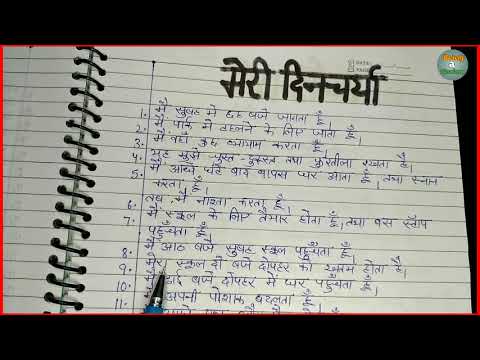 मेरी दिनचर्या
1. मैं सुबह में छह बजे जागता हूँ।
2. मैं पार्क में टहलने के लिए जाता हूँ।
3. मैं वहाँ कुछ व्यायाम करता हूँ।
4. यह मुझे चुस्त-दुरुस्त तथा फुर्तीला रखता है।
5. मैं आधे घंटे बाद वापस घर आता हूँ, तथा स्नान
करता हूँ।
6. तब मैं नाश्ता करता हूँ।
7. मैं स्कूल के लिए तैयार होता हूँ, तथा बस स्टॉप
पहुँचता हूँ।
8. मैं आठ बजे सुबह स्कूल पहुँचता हूँ।
9. मेरा स्कूल दो बजे दोपहर को खत्म होता है।
10. ढाई बजे दोपहर में घर पहुँचता हूँ।
11. अपनी पोशाक बदलता हूँ।